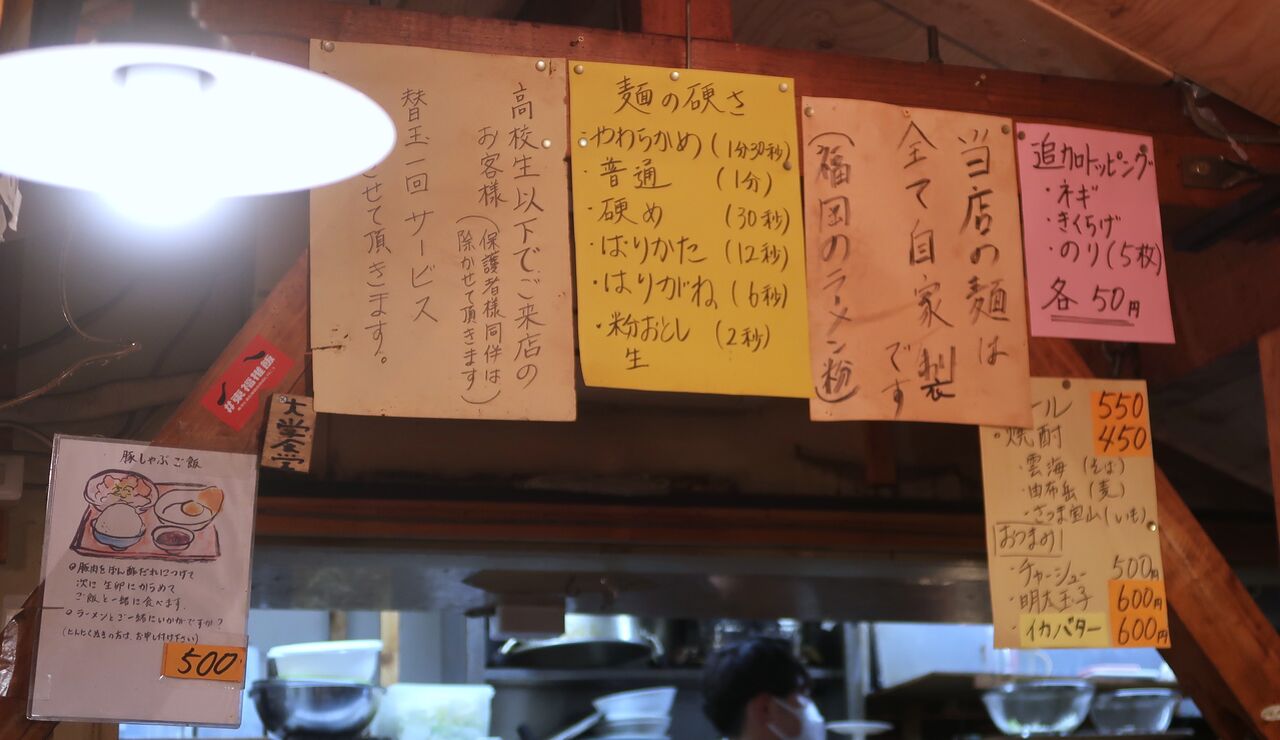 高校生以下でご来店の
お客様(保護者様同伴は
除かせて頂きます)
替玉一回サービス
させて頂きます。
麺の硬さ
・やわらかめ(1分30秒)
・普通(1分)
・硬め(30秒)
・ばりかた(12秒)
・はりがね(6秒)
・粉おとし(2秒)
生
当店の麺は
全て自家製
です
(福岡のラーメン粉)
追加トッピング
・ネギ
・きくらげ
・のり(5枚)
各50円
ール 550
◦焼酎 450
・雲海(そば)
・由布岳(麦)
・さつま宝山(いも)
おつまみ
・チャーシュー 500円
・明太玉子 600円
イカバター 600円
豚しゃぶご飯
◦豚肉をぽん酢だれにつけて
次に生卵にからめて
ご飯と一緒に食べます.
◦ラーメンとご一緒にいかがですか?
(にんにく抜きの方は、お申し付け下さい)
500